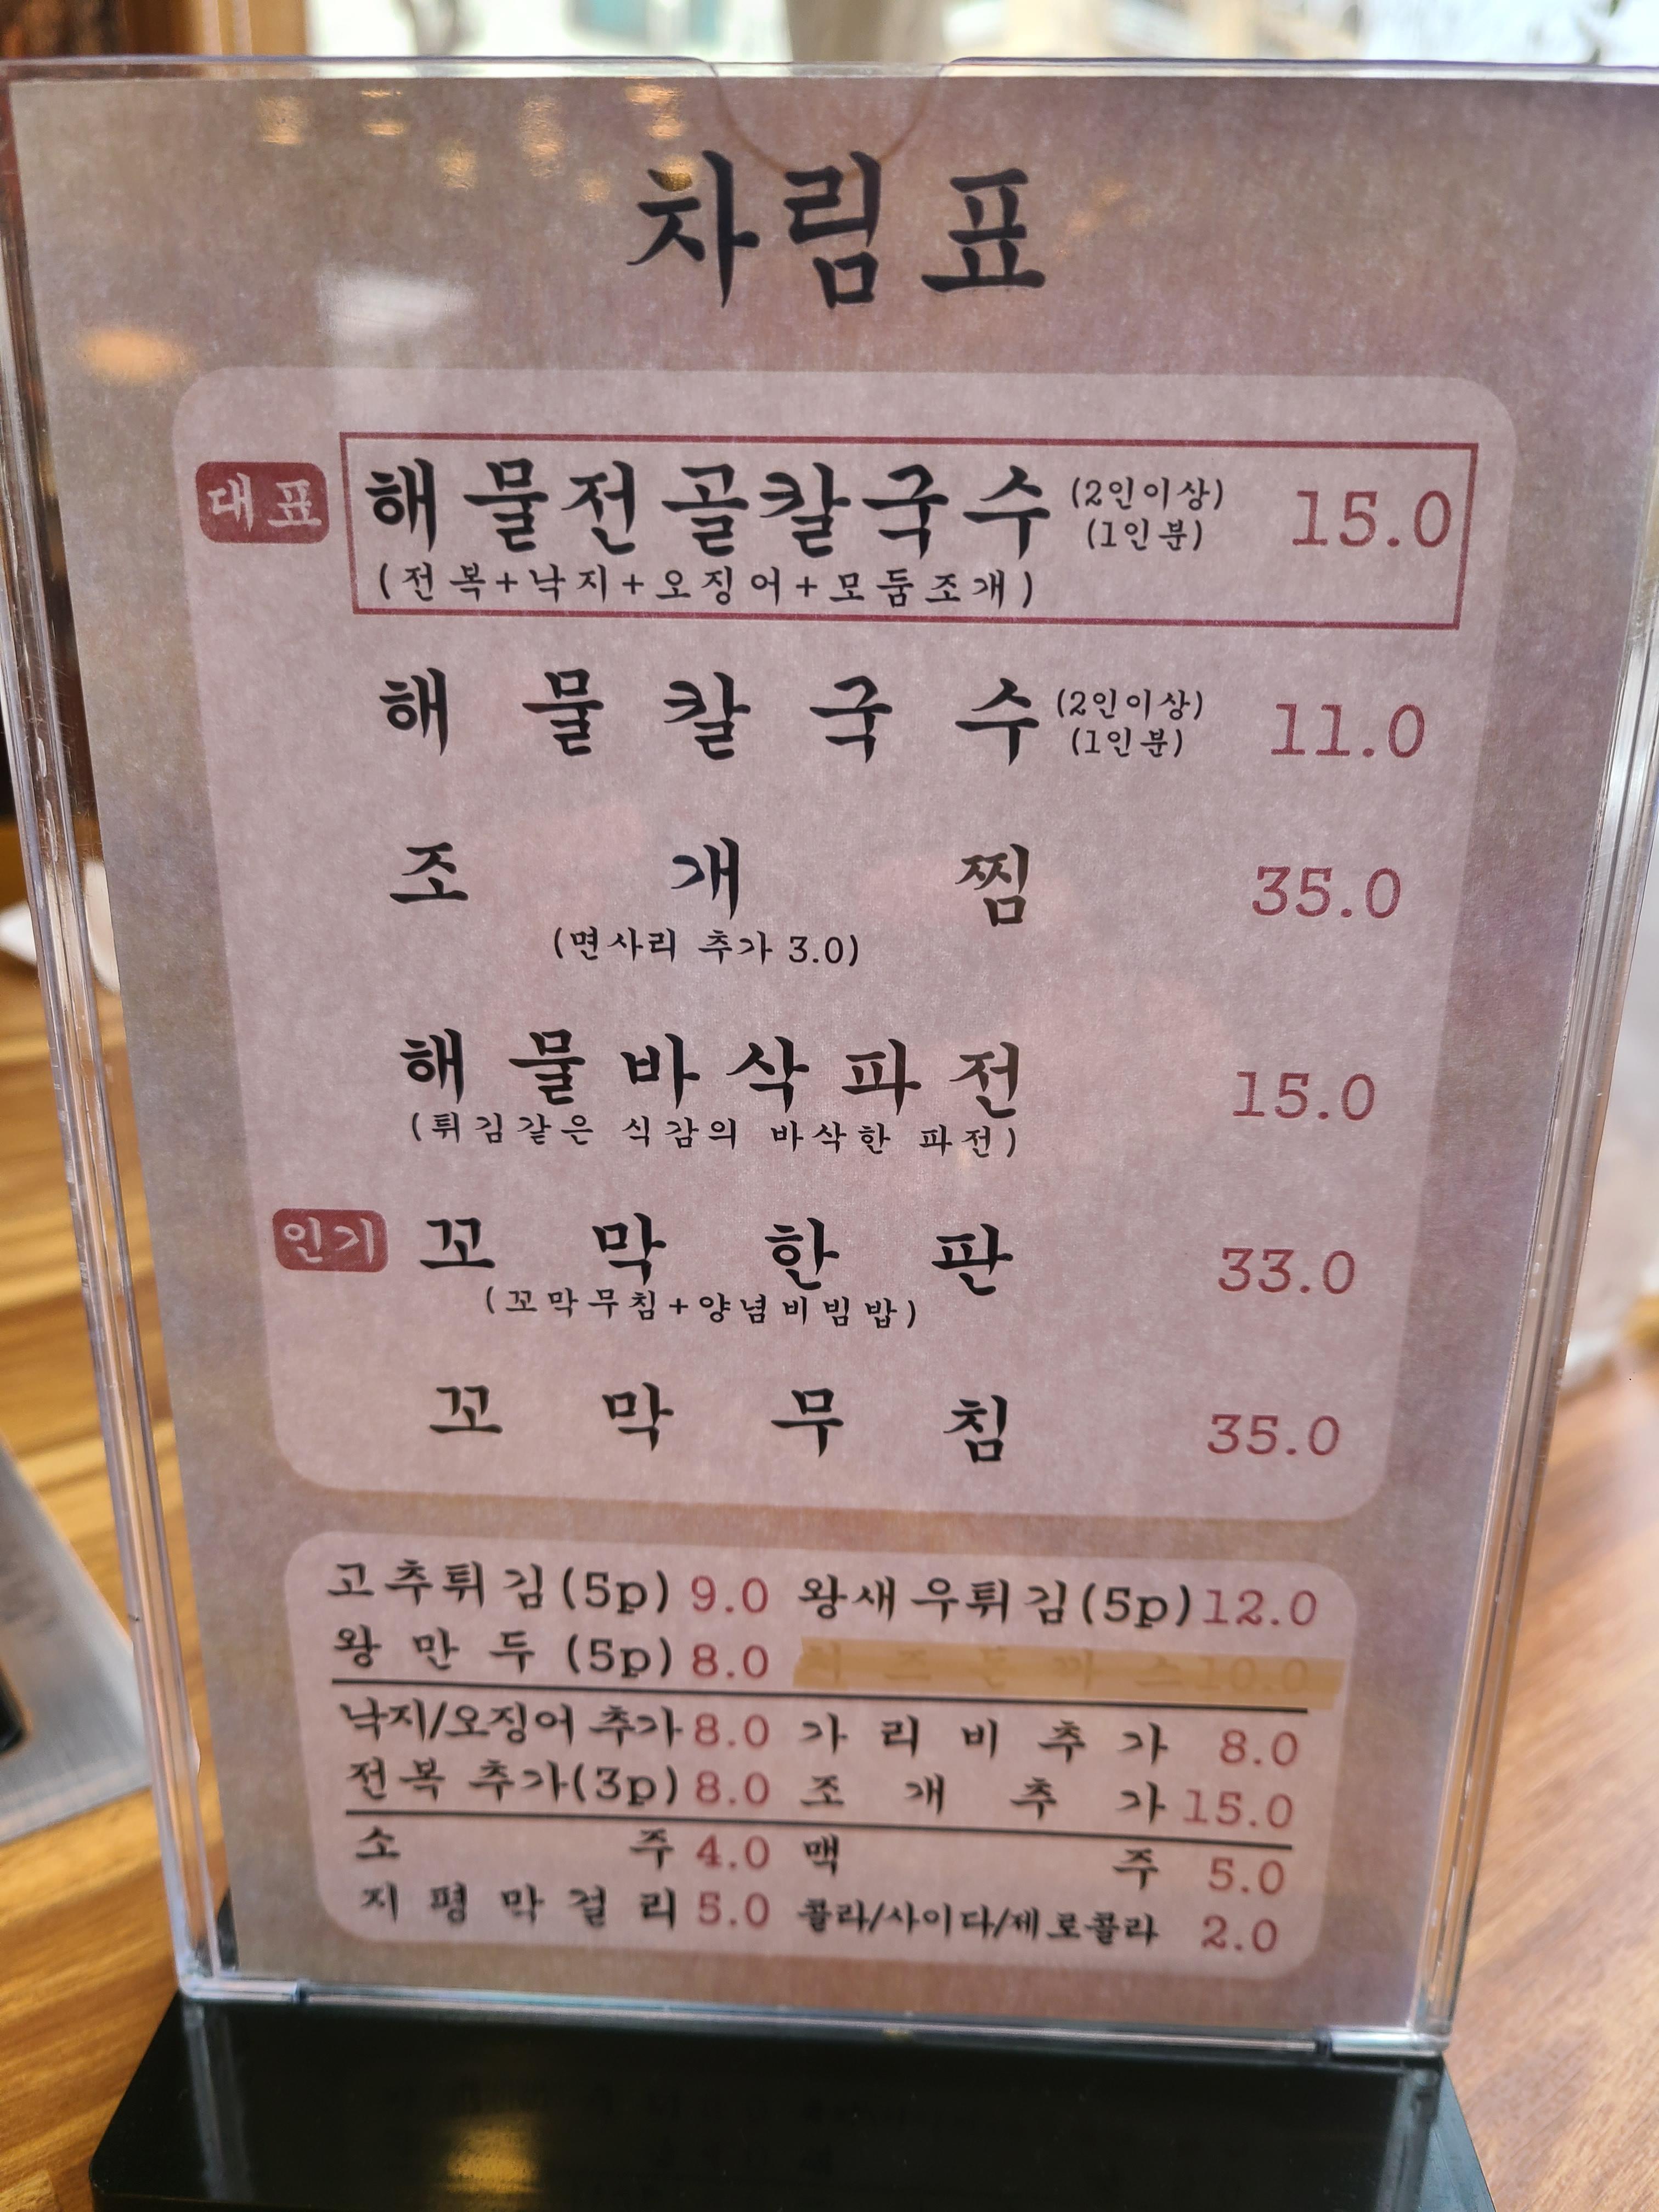 차림표
대표 해물전골칼국수 (2인이상) (1인분) 15.0
(전복+낙지+오징어+모둠조개)
해물칼국수 (2인이상) (1인분) 11.0
조개찜 35.0
(면사리 추가 3.0)
해물바삭파전 15.0
(튀김같은 식감의 바삭한 파전)
인기 꼬막한판 33.0
(꼬막무침+양념비빔밥)
꼬막무침 35.0
고추튀김(5p) 9.0 왕새우튀김(5p) 12.0
왕만두(5p) 8.0 치즈돈까스 10.0
낙지/오징어 추가 8.0 가리비추가 8.0
전복 추가(3p) 8.0 조개추가 15.0
소주 4.0 맥주 5.0
지평막걸리 5.0 콜라/사이다/제로콜라 2.0